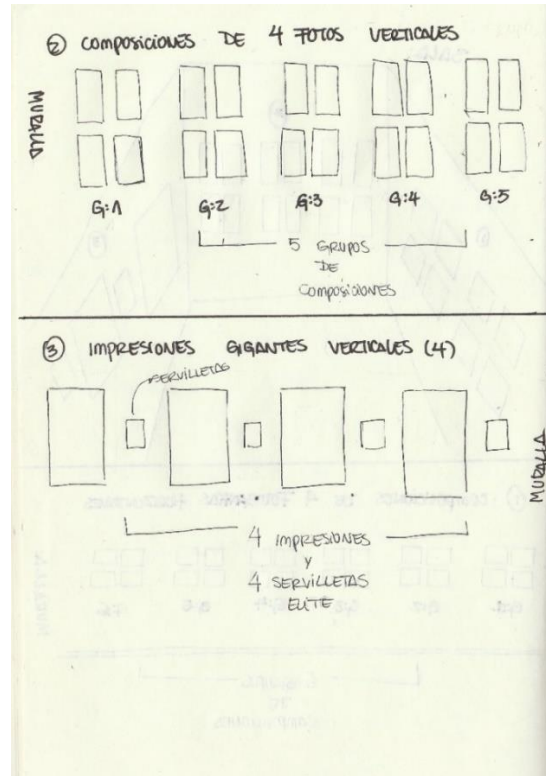 ② COMPOSICIONES DE 4 FOTOS VERTICALES
MURALLA
G:1 G:2 G:3 G:4 G:5
5 GRUPOS
DE
COMPOSICIONES
③ IMPRESIONES GIGANTES VERTICALES (4)
SERVILLETAS
MURALLA
4 IMPRESIONES
Y
4 SERVILLETAS
ELITE